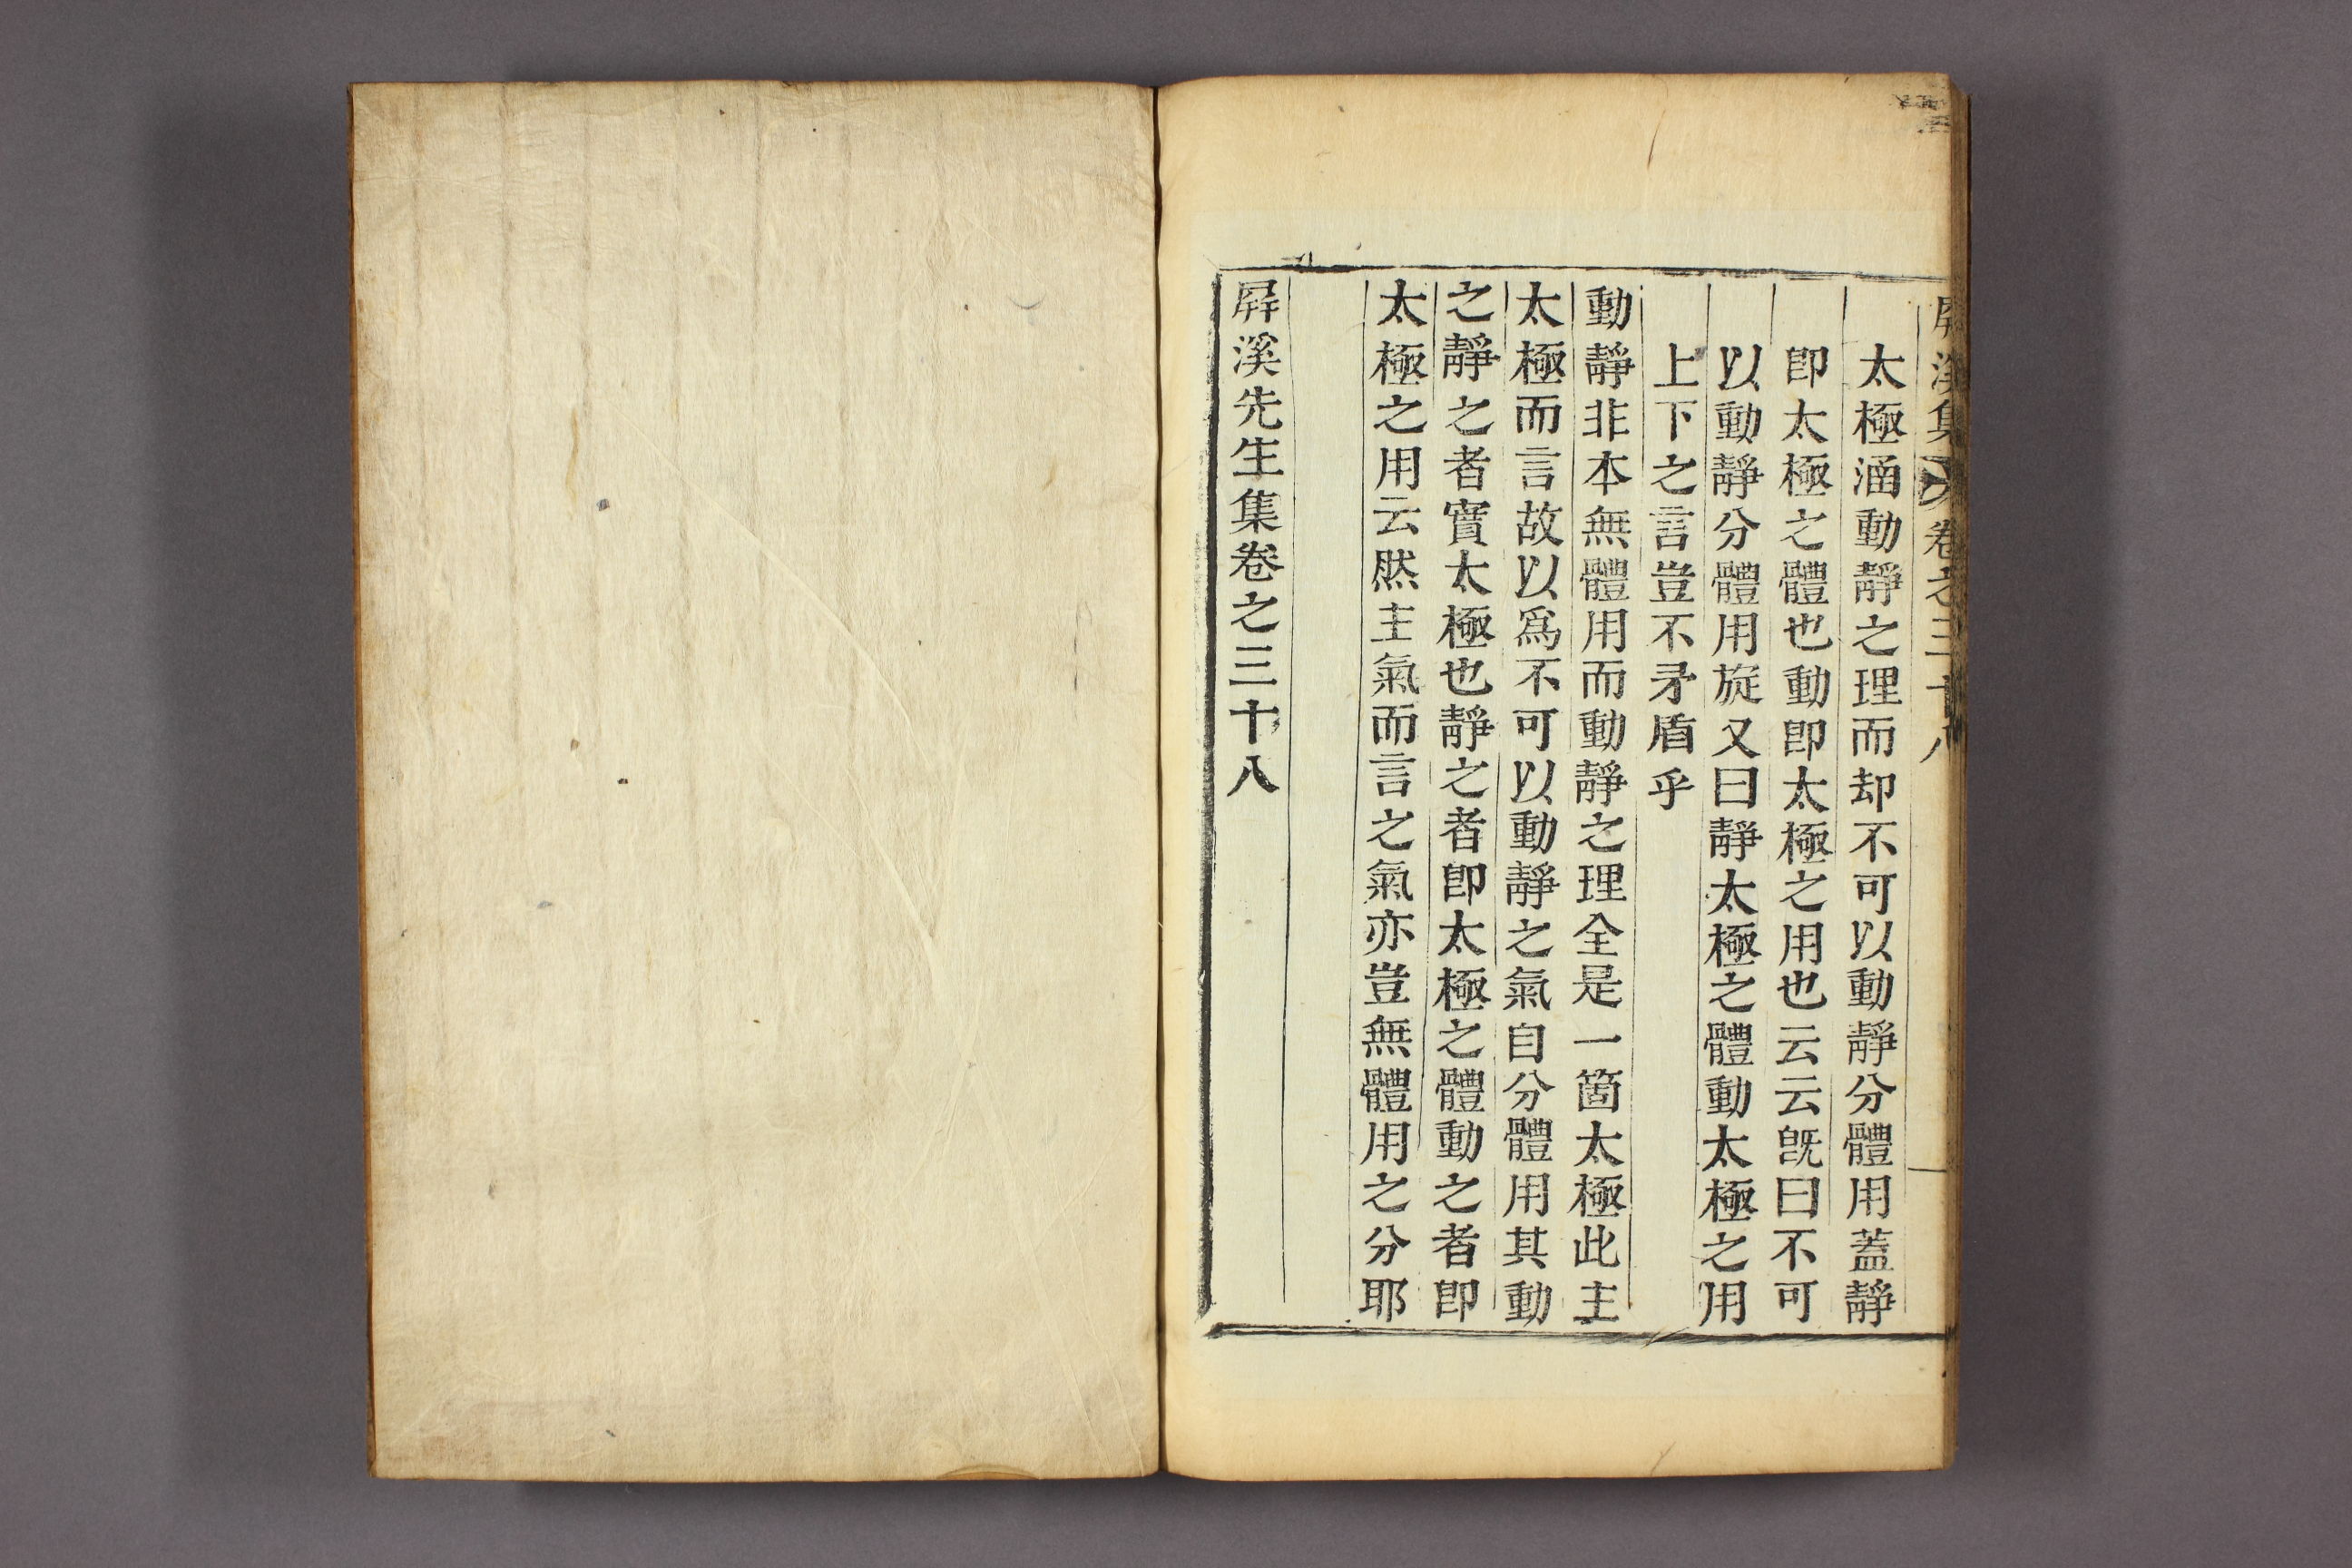 屛溪集 卷之三十八
太極涵動靜之理而却不可以動靜分體用蓋靜
卽太極之體也動卽太極之用也云云旣曰不可
以動靜分體用旋又曰靜太極之體動太極之用
上下之言豈不矛盾乎
動靜非本無體用而動靜之理全是一箇太極此主
太極而言故以爲不可以動靜之氣自分體用其動
之靜之者實太極也靜之者卽太極之體動之者卽
太極之用云然主氣而言之氣亦豈無體用之分耶
屛溪先生集卷之三十八